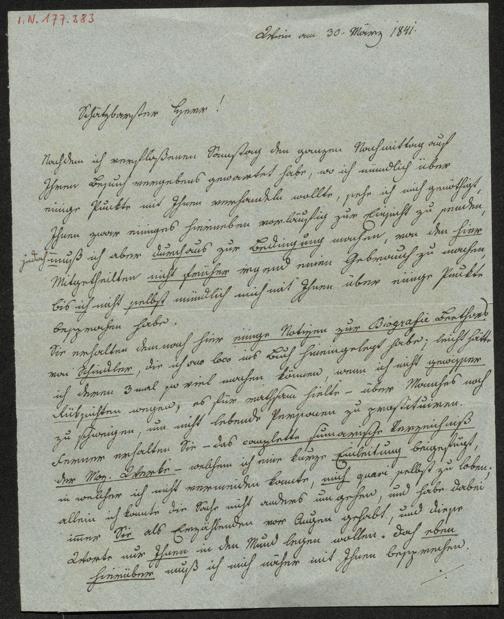 I.N. 177.283
Wien am 30. März 1841.
Schätzbarster Herr!
Nachdem ich verfloßenen Samstag den ganzen Nachmittag auf
Ihren Besuch vergebens gewartet habe, wo ich mündlich über
einige Punkte mit Ihnen verhandeln wollte, sehe ich mich genöthigt,
Ihnen zwar einiges hierneben vorläufig zur Einsicht zu senden,
jedoch muß ich aber durchaus zur Bedingung machen, von den hier
Mitgetheilten nicht früher irgend einen Gebrauch zu machen
bis ich nicht selbst mündlich mich mit Ihnen über einige Punkte
besprochen habe.
Sie erhalten demnach hier einige Notizen zur Biografie Beethovens
von Schindler, die ich ad loco ins Buch hineingelegt habe; leicht hätte
ich deren 3mal so viel machen können, wenn ich nicht gewisser
Rücksichten wegen, es für rathsam hielte – über Manches noch
zu schweigen, um nicht lebende Personen zu prostituiren.
Ferner erhalten Sie – das complette sumarische Verzeichniß
der Moz. Werke – welchem ich eine kurze Einleitung beigefügt,
in welcher ich nicht vermeiden konnte, mich quasi selbst zu loben.
allein ich konnte die Sache nicht anders umgehen, und habe dabei
immer Sie als Erzählenden vor Augen gehabt, und diese
Worte nur Ihnen in den Mund legen wollen. Doch eben
hierüber muß ich mich näher mit Ihnen besprechen.